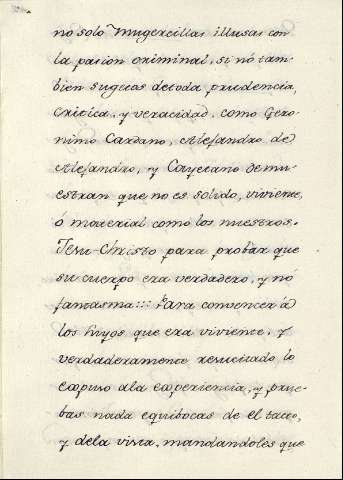 no solo Mugercillas illusas con
la pasion criminal, si nó tam-
bien sugetos de toda prudencia,
critica, y veracidad. como Gero-
nimo Cardano, Alejandro de
Alejandro, y Cayetano demu-
estran que no es solido, viviente,
ó material como los nuestros.
Jesu-Christo para probar que
su cuerpo era verdadero, y nó
fantasma::: Para convencer á
los suyos que era viviente, y
verdaderamente resucitado lo
expuso ala experiencia, y prue-
bas nada equibocas de el tacto,
y dela vista, mandandoles que